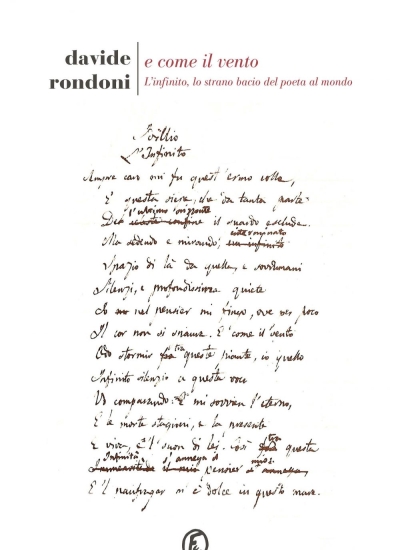 davide
rondoni
e come il vento
L'infinito, lo strano bacio del poeta al mondo
Idillio
L'Infinito
Sempre caro mi fu quest'ermo colle,
E questa siepe, che da tanta parte
l'ultimo orizzonte
Del confine il guardo esclude.
Ma sedendo e mirando, un infinito
Spazio di là da quella, e sovrumani
Silenzi, e profondissima quiete
Io nel pensier mi fingo, ove per poco
Il cor non si spaura. E come il vento
tra
Odo stormir fra queste piante, io quello
Infinito silenzio a questa voce
Vo comparando: E mi sovvien l'eterno,
E le morte stagioni, e la presente
tra
E viva, e 'l suon di lei. Così fra questa
Infinità s'annega il mio
Immensitade il mio pensier s'annega,
E 'l naufragar m'è dolce in questo mare.